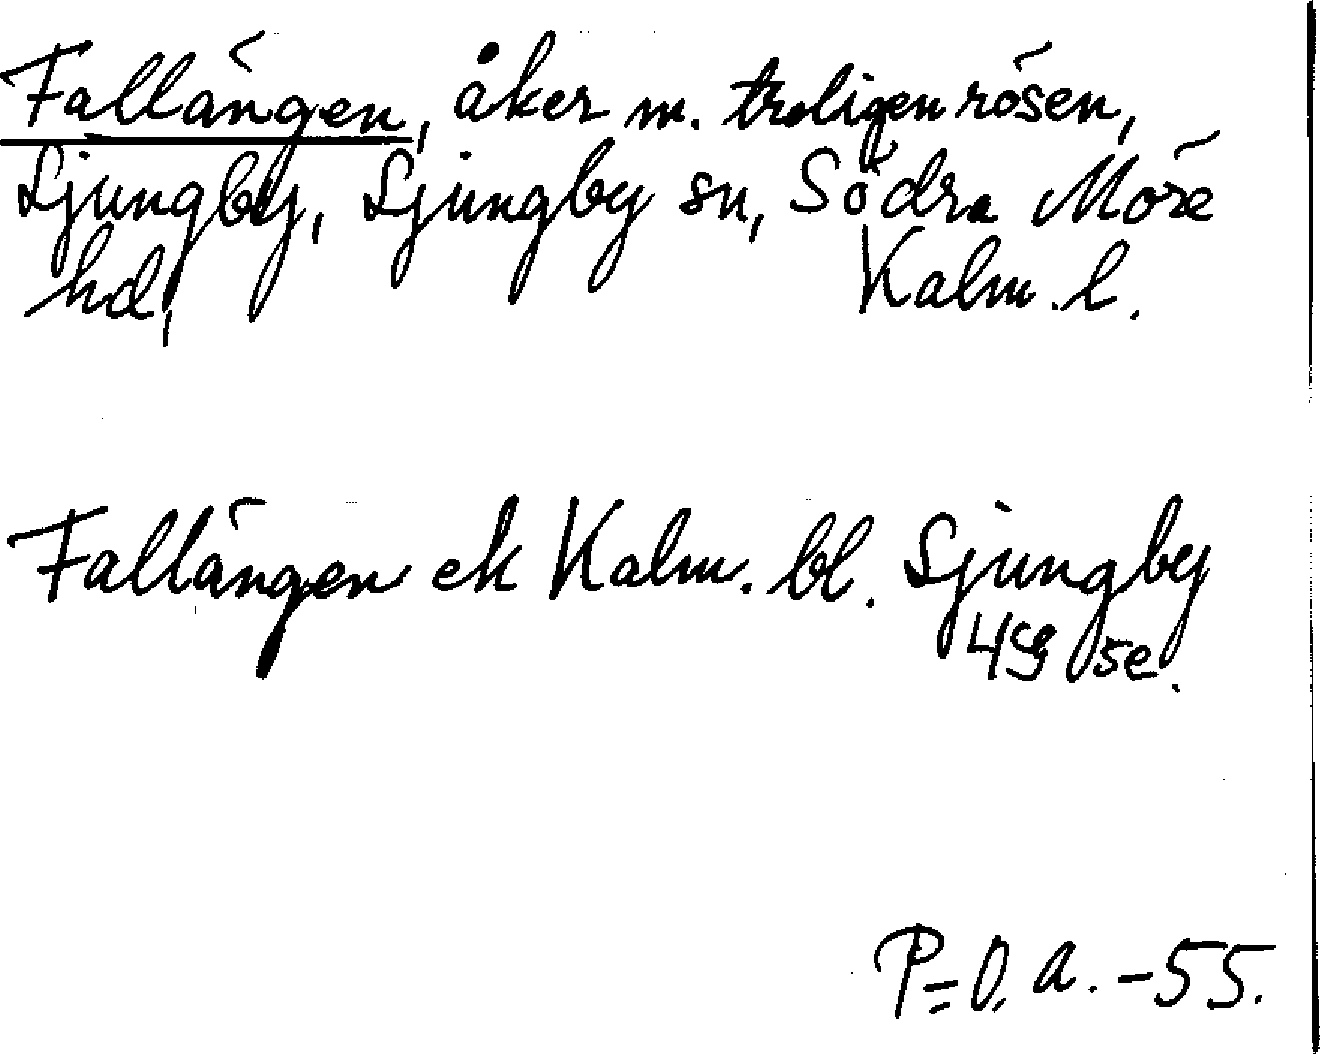 Fallängen, åker m. troligen rösen,
Ljungby, Ljungby sn, Södra Möre
hd, Kalm. l.
Fallängen ek Kalm. bl. Ljungby
49 5e.
P=O. a. -55.